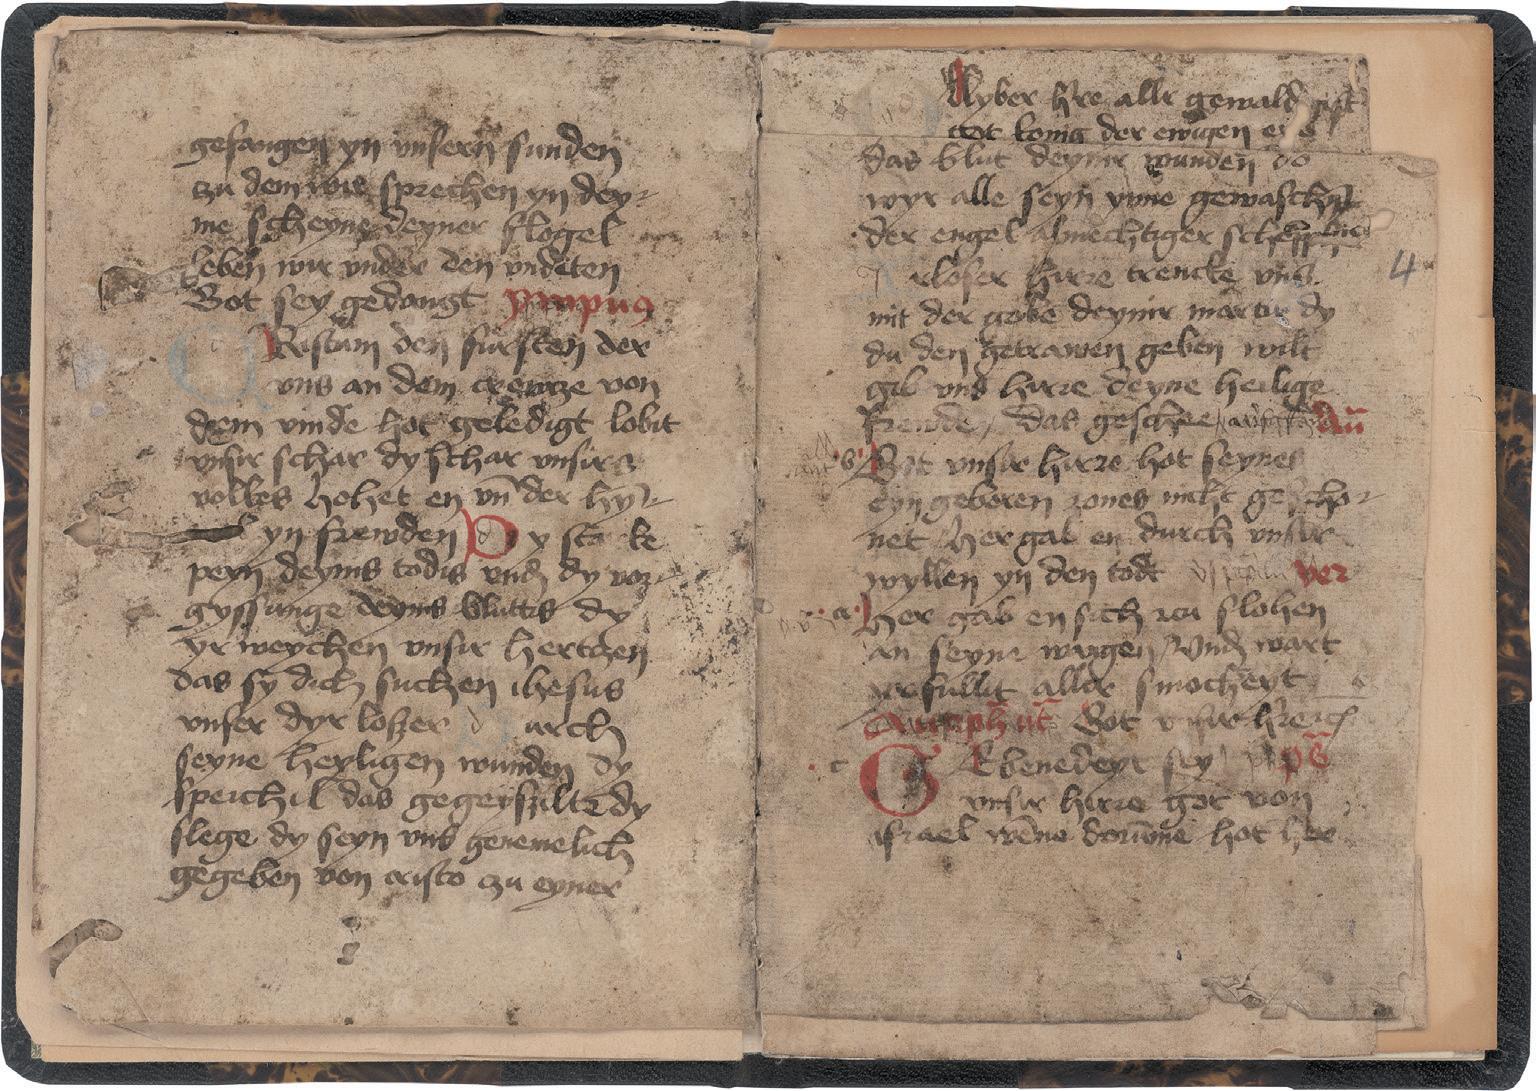 gefangen yn vnsern sunden
zu dem wir sprechen yn dey-
me scheyne deyner flogel
leben wir vnder den vndeten
Got sey gedangt
Ristum den fursten der
vns an dem crewtze von
dem vinde hot geledigt lobit
vnsir schar dy schar vnsirs
volkes hohet en vn der hy-
yn frewden Dy starke
peyn deyms todis vnd dy vor-
gyssunge deyns bluttis dy
yr weychen vnsir hertczen
das sy dich suchen ihesus
vnser dyr loszer d urch
seyne heyligen wunden dy
speichil das gegeyszilte dy
slege dy seyn vns gemenelich
gegeben von cristo zu eyner
lyber hre allr gewald
got konig der ewigen
das blut deynir wunden do
wyr alle seyn ynne gewaschen
der engel almechtiger
rloser hirre trencke vns
mit der gobe deynir martir dy
du den getrawen geben wilt
gib vns hirre deyne heilige
frewde das geschee An
Got vnsir hirre hot seynes
eyn geboren zones nicht gescho-
net Her gab en durch vnsir
wyllen yn den todt ver
a Her gab en sich zcu slohen
an seyne wangen Vnd wart
irfullit allir smocheyt
Got vnsir
c G Ebenedeyt sey ps
vnsir hirre got von
israel wene dorumme hot her
4